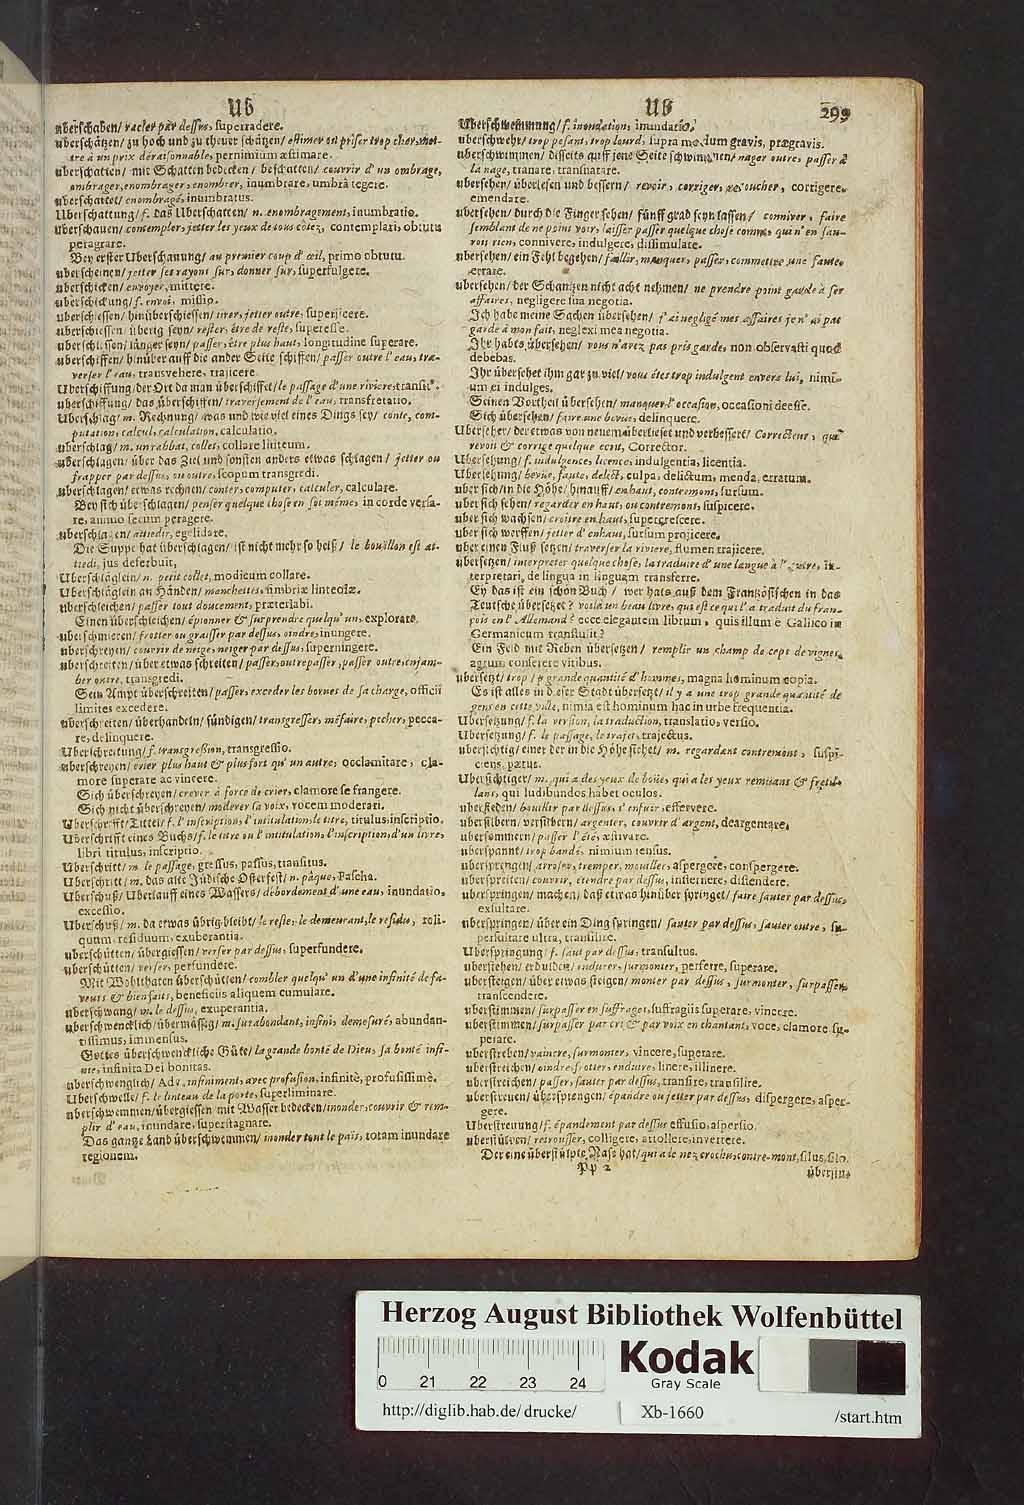 Ub
überschaben/ racler par dessus, superradere.
überschätzen/ zu hoch und zu theuer schätzen/ estimer ou priser trop cher, met-
tre à un prix déraisonnable, pernimium æstimare.
überschatten/ mit Schatten bedecken/ beschatten/ couvrir d'un ombrage,
ombrager, enombrager, enombrer, inumbrare, umbrâ tegere.
überschattet/ enombragé, inumbratus.
Uberschattung/ f. das Uberschatten/ n. enombragement, inumbratio.
überschauen/ contempler, jetter les yeux de tous côtez, contemplari, obtutu
peragrare.
Bey erster Uberschauung/ au premier coup d'œil, primo obtutu.
überscheinen/ jetter ses rayons sur, donner sur, superfulgere.
überschicken/ envoyer, mittere.
überschickung/ f. envoi, missio.
überschiessen/ hinüberschiessen/ tirer, jetter outre, superjicere.
überschiessen/ übrig seyn/ rester, être de reste, superesse.
überschiessen/ länger seyn/ passer, être plus haut, longitudine superare.
überschiffen/ hinüber auff die ander Seite schiffen/ passer outre l'eau, tra-
verser l'eau, transvehere, trajicere.
Uberschiffung/ der Ort da man überschiffet/ le passage d'une riviere, transitº.
überschiffung/ das überschiffen/ traversement de l'eau, transfretatio.
Uberschlag/ m. Rechnung/ was und wie viel eines Dings sey/ conte, com-
putation, calcul, calculation, calculatio.
überschlag/ m. un rabbat, collet, collare linteum.
überschlagen/ über das Ziel und sonsten anders etwas schlagen/ jetter ou
frapper par dessus, ou outre, scopum transgredi.
überschlagen/ etwas rechnen/ conter, computer, calculer, calculare.
Bey sich überschlagen/ penser quelque chose en soi même, in corde versa-
re, animo secum peragere.
überschlagen/ attiedir, egelidare.
Die Suppe hat überschlagen/ ist nicht mehr so heiß/ le bouillon est at-
tiedi, jus deferbuit,
Uberschläglein/ n. petit collet, modicum collare.
Uberschläglein an Händen/ manchettes, fimbriæ linteolæ.
überschleichen/ passer tout doucement, præterlabi.
Einen überschleichen/ épionner & surprendre quelqu'un, explorare.
überschmieren/ frotter ou graisser par dessus, oindre, inungere.
überschneyen/ couvrir de neige, neiger par dessus, superningere.
überschreiten/ über etwas schreiten/ passer, outrepasser, passer outre, enjam-
ber outre, transgredi.
Sein Ampt überschreiten/ passer, exceder les bornes de sa charge, officii
limites excedere.
überschreiten/ überhandeln/ sündigen/ transgresser, méfaire, pecher, pecca-
re, delinquere.
Uberschreitung/ f. transgression, transgressio.
überschreyen/ crier plus haut & plus fort qu'un autre, occlamitare, cla-
more superare ac vincere.
Sich überschreyen/ crever à force de crier, clamore se frangere.
Sich nicht überschreyen/ moderer sa voix, vocem moderari.
Uberschrifft/ Tittel/ f. l'inscription, l'intitulation, le titre, titulus, inscriptio.
Uberschrifft eines Buchs/ f. le titre ou l'intitulation, l'inscription, d'un livre,
libri titulus, inscriptio.
Uberschritt/ m. le passage, gressus, passus, transitus.
Uberschritt/ m. das alte Jüdische Osterfest/ n. pâque, Pascha.
Uberschuß/ Uberlauff eines Wassers/ débordement d'une eau, inundatio,
excessio.
Uberschuß/ m. da etwas übrig bleibt/ le reste, le demeurant, le residu, reli-
quum, residuum, exuberantia.
überschütten/ übergiessen/ verser par dessus, superfundere.
überschütten/ verser, perfundere.
Mit Wohlthaten überschütten/ combler quelqu'un d'une infinité de fa-
veurs & bienfaits, beneficiis aliquem cumulare.
überschwang/ m. le dessus, exuperantia.
überschwencklich/ übermässig/ m. surabondant, infini, demesuré, abundan-
tissimus, immensus.
Gottes überschwenckliche Güte/ la grande bonté de Dieu, sa bonté infi-
nie, infinita Dei bonitas.
überschwenglich/ Adv. infiniment, avec profusion, infinitè, profusissimè.
Uberschwelle/ f. le linteau de la porte, superliminare.
überschwemmen/ übergiessen mit Wasser bedecken/ inonder, couvrir & rem-
plir d'eau, inundare, superstagnare.
Das gantze Land überschwemmen/ inonder tout le païs, totam inundare
regionem.
Ub 299
Uberschwemmung/ f. inondation, inundatio.
überschwehr/ trop pesant, trop lourd, supra modum gravis, prægravis.
überschwimmen/ disseits auff jene Seite schwimmen/ nager outre, passer à
la nage, tranare, transnatare.
übersehen/ überlesen und bessern/ revoir, corriger, retoucher, corrigere,
emendare.
übersehen/ durch die Finger sehen/ fünff grad seyn lassen/ conniver, faire
semblant de ne point voir, laisser passer quelque chose comme, qui n'en sau-
roit rien, connivere, indulgere, dissimulare.
übersehen/ ein Fehl begehen/ faillir, manquer, passer, commettre une faute,
errare.
übersehen/ der Schantzen nicht acht nehmen/ ne prendre point garde à ses
affaires, negligere sua negotia.
Ich habe meine Sachen übersehen/ j'ai negligé mes affaires je n'ai pas
garde à mon fait, neglexi mea negotia.
Ihr habts übersehen/ vous n'avez pas pris garde, non observasti quod
debebas.
Ihr übersehet ihm gar zu viel/ vous êtes trop indulgent envers lui, nimi-
um ei indulges.
Seinen Vortheil übersehen/ manquer l'occasion, occasioni deesse.
Sich übersehen/ faire une bevue, delinquere.
Ubersehet/ der etwas von neuem überlieset und verbessert/ Correcteur, qui
revoit & corrige quelque ecrit, Corrector.
Ubersehung/ f. indulgence, licence, indulgentia, licentia.
Ubersehung/ bevue, faute, delict, culpa, delictum, menda, erratum.
über sich/ in die Höhe/ hinauff/ en haut, contremont, sursum.
über sich sehen/ regarder en haut, ou contremont, suspicere.
über sich wachsen/ croitre en haut, supergrescere.
über sich werffen/ jetter d'enhaut, sursum projicere.
über einen Fluß setzen/ traverser la riviere, flumen trajicere.
übersetzen/ interpreter quelque chose, la traduire d'une langue à l'autre, in-
terpretari, de lingua in linguam transferre.
Ey das ist ein schön Buch/ wer hats auß dem Frantzösischen in das
Teutsche übersetzet? voila un beau livre, qui est ce qui l'a traduit du fran-
çois en l'Allemand? ecce elegantem librum, quis illum è Gallico in
Germanicum transtulit?
Ein Feld mit Reben übersetzen/ remplir un champ de ceps de vignes,
agrum conserere vitibus.
übersetzt/ trop grande quantité d'hommes, magna hominum copia.
Es ist alles in dieser Stadt übersetzt/ il y a une trop grande quantité de
gens en cette ville, nimia est hominum hac in urbe frequentia.
Ubersetzung/ f. la version, la traduction, translatio, versio.
Ubersetzung/ f. le passage, le trajet, trajectus.
übersichtig/ einer der in die Höhe siehet/ m. regardant contremont, suspi-
ciens, pætus.
Ubersichtiger/ m. qui a des yeux de boüe, qui a les yeux remuans & fretil-
lans, qui ludibundos habet oculos.
übersieden/ bouillir par dessus, s'enfuir, effervere.
übersilbern/ versilbern/ argenter, couvrir d'argent, deargentare.
übersommern/ passer l'été, æstivare.
überspannt/ trop bandé, nimium tensus.
übersprengen/ arroser, tremper, mouiller, aspergere, conspergere.
überspreiten/ couvrir, étendre par dessus, insternere, distendere.
überspringen/ machen/ daß etwas hinüber springet/ faire sauter par dessus,
exsultare.
überspringen/ über ein Ding springen/ sauter par dessus, sauter outre, su-
persultare ultra, transilire.
Uberspringung/ f. saut par dessus, transultus.
überstehen/ erdulden/ endurer, surmonter, perferre, superare.
übersteigen/ über etwas steigen/ monter par dessus, surmonter, surpasser,
transcendere.
überstimmen/ surpasser en suffrages, suffragiis superare, vincere.
überstimmen/ surpasser par cri & par voix en chantant, voce, clamore su-
perare.
überstreben/ vaincre, surmonter, vincere, superare.
überstreichen/ oindre, frotter, enduire, linere, illinere.
überstreichen/ passer, sauter par dessus, transire, transilire.
überstreuen/ übersprengen/ épandre ou jetter par dessus, dispergere, asper-
gere.
Uberstreuung/ f. épandement par dessus effusio, aspersio.
überstülpen/ retrousser, colligere, attollere, invertere.
Der eine überstülpte Nase hat/ qui a le nez crochu, contre-mont, silus, silo.
Pp 2 überstu-
Herzog August Bibliothek Wolfenbüttel
0 21 22 23 24
Kodak
Gray Scale
http://diglib.hab.de/drucke/ Xb-1660 /start.htm